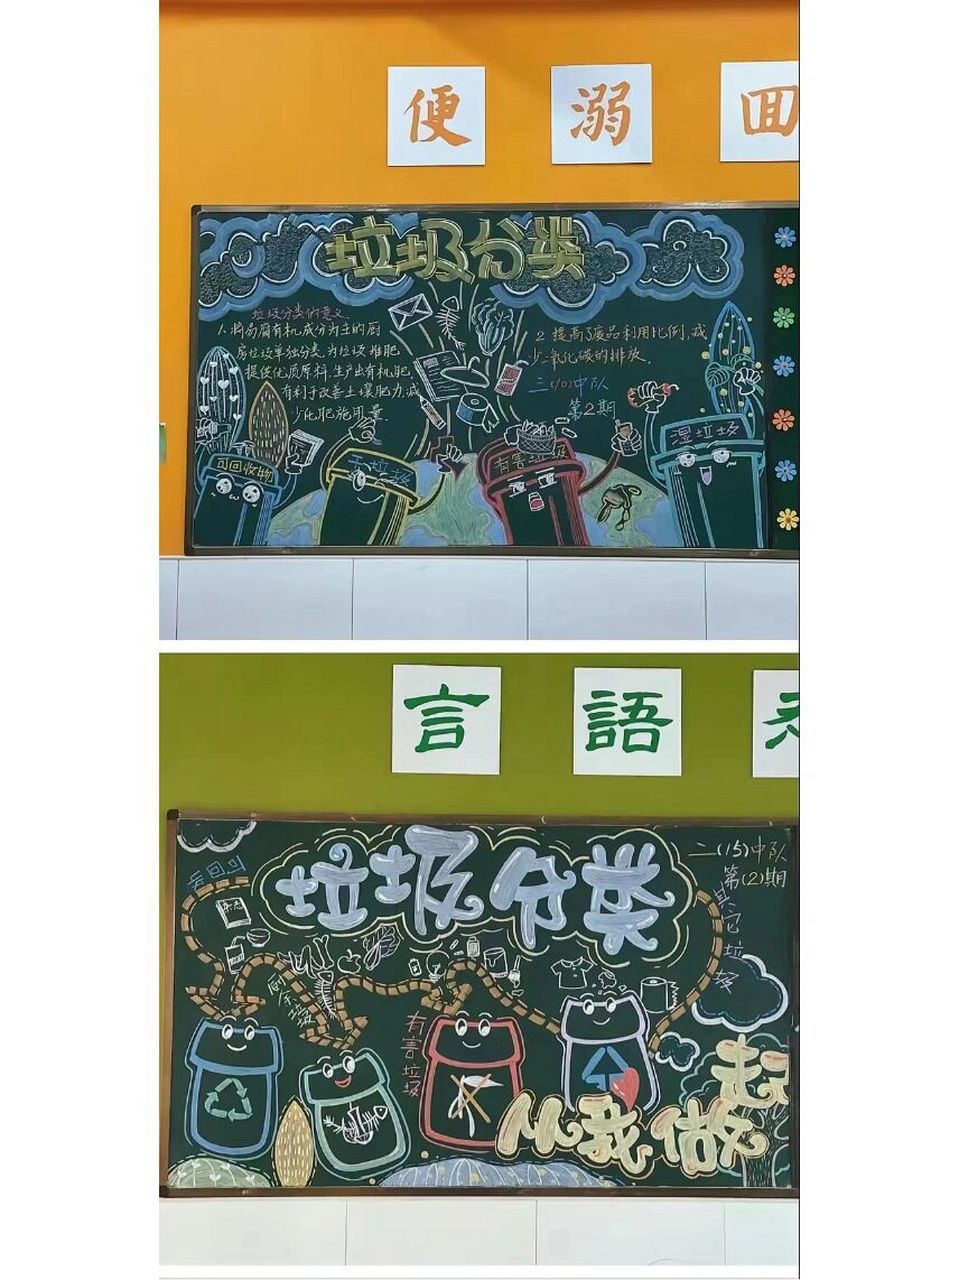 便 溺 回
垃圾分类
垃圾分类的意义
1. 将易腐有机成分为主的厨
房垃圾单独分类,为垃圾堆肥
提供优质原料,生产出有机肥,
有利于改善土壤肥力,减
少化肥施用量
2 提高了废品利用比例,减
少二氧化碳的排放
三(10)中队
第2期
可回收物
干垃圾
有害垃圾
湿垃圾
言 語
垃圾分类
二(15)中队
第(2)期
可回
杂志
厨余垃圾
有害垃圾
其它垃圾
从我做起